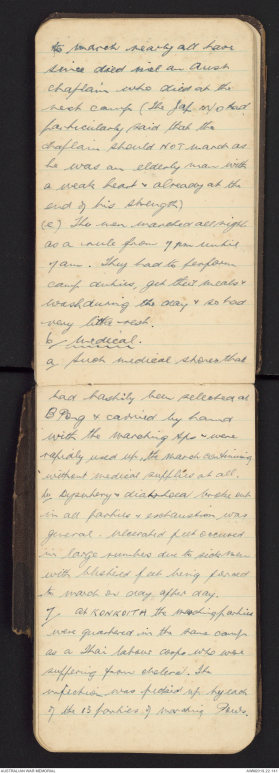 to march nearly all have
since died incl an Aust
chaplain who died at the
next camp (the Jap M/O had
particularly said that the
chaplain should NOT march as
he was an elderly man with
a weak heart & already at the
end of his strength)
(c) The men marched all night
as a rule from 7 pm until
7 am. They had to perform
camp duties, get their meals &
wash during the day & so had
very little rest.
6/ Medical.
a/ Such medical stores that
had hastily been selected at
B Pong & carried by hand
with the marching tps & were
rapidly used up, the march continuing
without medical supplies at all.
b/ Dysentery & diarrhoea broke out
in all parties & exhaustion was
general. Ulcerated feet occured
in large numbers due to sick men
with blistered feet being forced
to march on day after day.
7/ At KONKOITA the marching parties
were quartered in the same camp
as a Thai labour corps who were
suffering from cholera. The
infection was picked up by each
of the 13 parties of marching Pows.
AUSTRALIAN WAR MEMORIAL